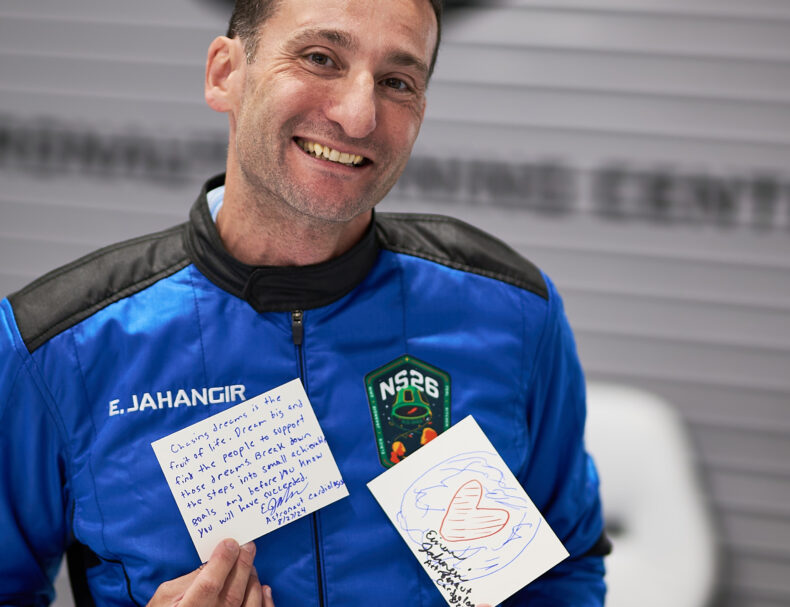 NING CENT
NS26
E. JAHANGIR
Chasing dreams is the
fruit of life. Dream big and
find the people to support
those dreams. Break down
the steps into small achievable
goals and before you know
you will have succeeded.
Astronaut cardiologist
8/27/24
Eiman
Jahangir
Astronaut
Cardiolog